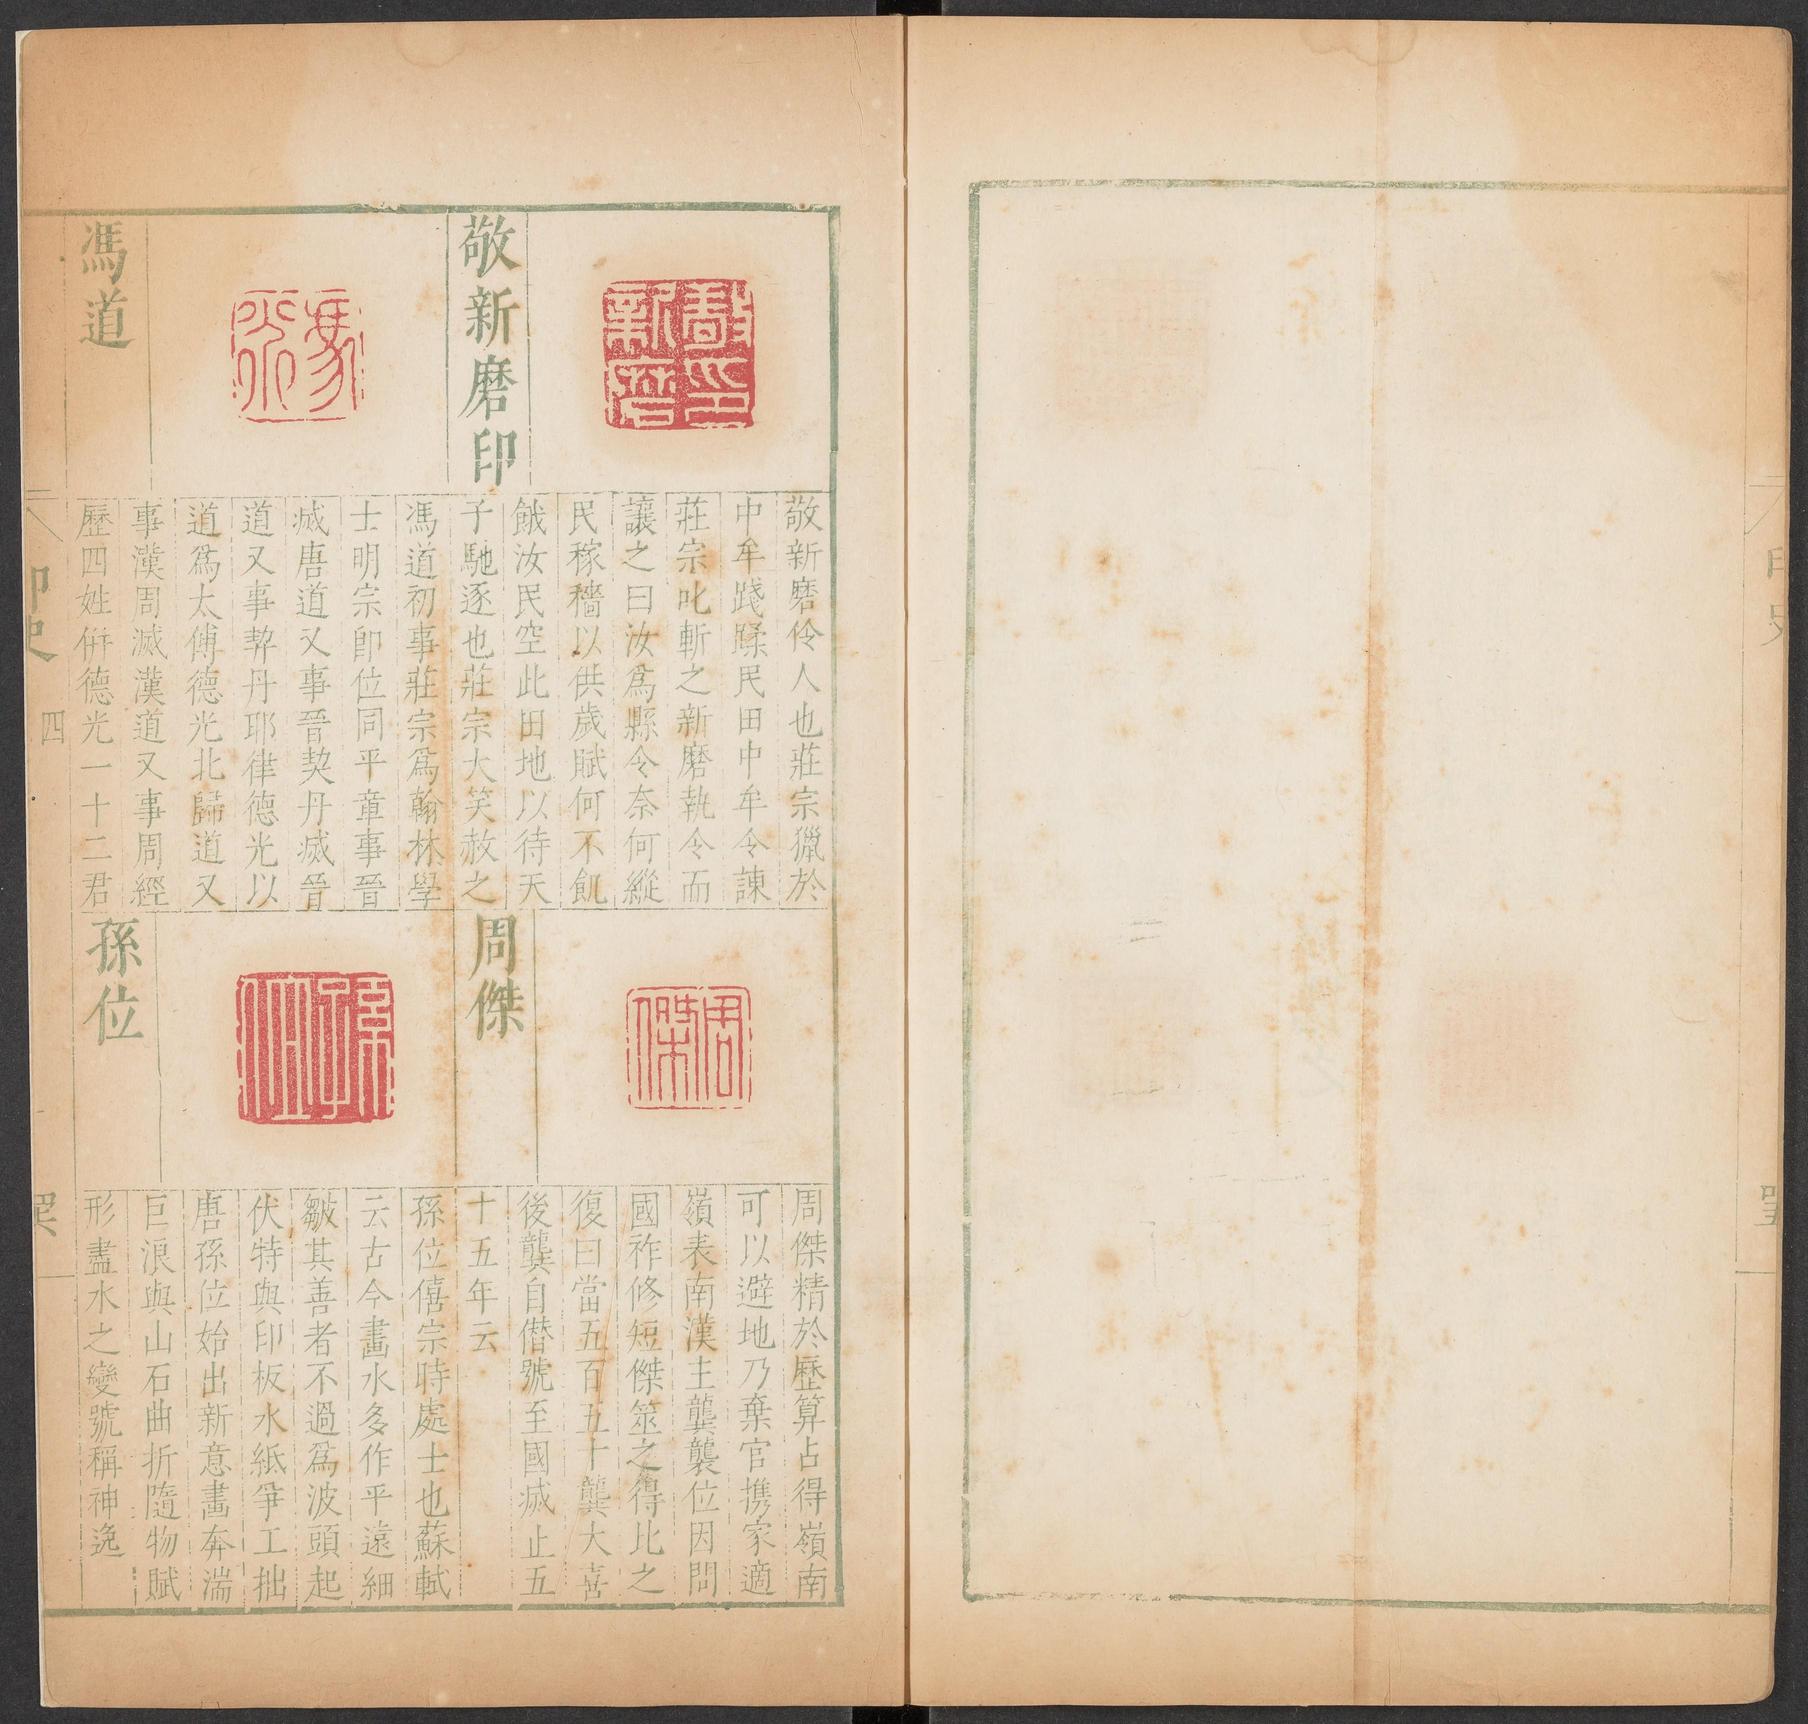 敬新磨印
敬新磨伶人也莊宗獵於
中牟踐蹂民田中牟令諫
莊宗叱斬之新磨執令而
讓之曰汝爲縣令奈何縱
民稼穡以供歲賦何不飢
餓汝民空此田地以待天
子馳逐也莊宗大笑赦之
馮道
馮道初事莊宗爲翰林學
士明宗卽位同平章事晉
滅唐道又事晉契丹滅晉
道又事契丹耶律德光以
道爲太傅德光北歸道又
事漢周滅漢道又事周經
歷四姓併德光一十二君
周傑
周傑精於歷算占得嶺南
可以避地乃棄官携家適
嶺表南漢主龔襲位因問
國祚修短傑筮之得比之
復曰當五百五十龔大喜
後龔自僣號至國滅止五
十五年云
孫位
孫位僖宗時處士也蘇軾
云古今畫水多作平遠細
皺其善者不過爲波頭起
伏特與印板水紙爭工拙
唐孫位始出新意畫奔湍
巨浪與山石曲折隨物賦
形盡水之變號稱神逸
印史
四